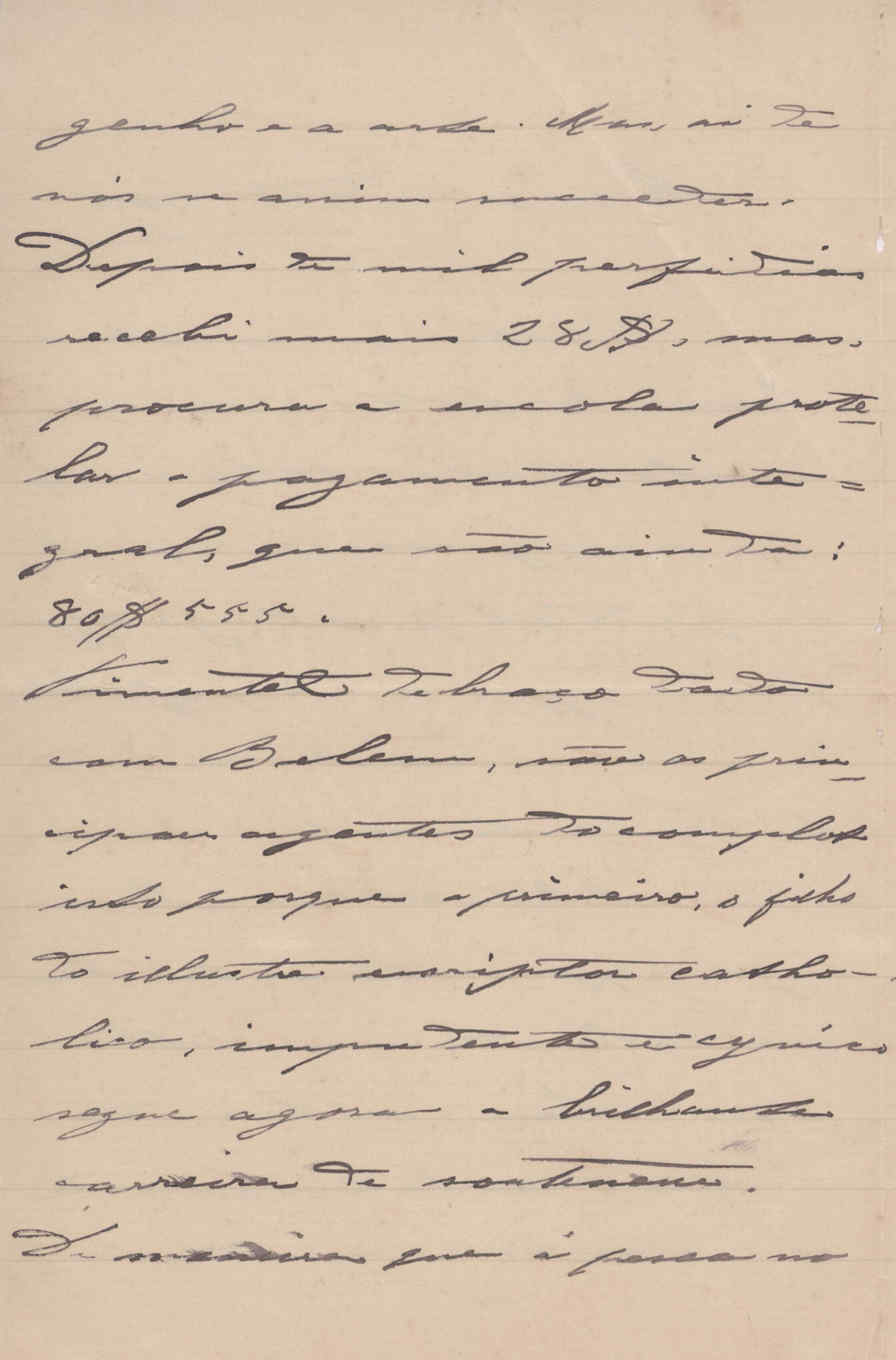 genho e a arte. Mas, ai de
nós se assim succeder.
Depois de mil perfidias
recebi mais 28$, mas,
procura a escola prote-
lar o pagamento inte=
gral, que são ainda:
80$555.
Pimentel de braço dado
com Belem, são os prin-
cipaes agentes do complot
isto porque o primeiro, o filho
do illustre escriptor catho-
lico, impudente e cynico
segue agora a brilhante
carreira de souteneur.
De maneira que é pesca no